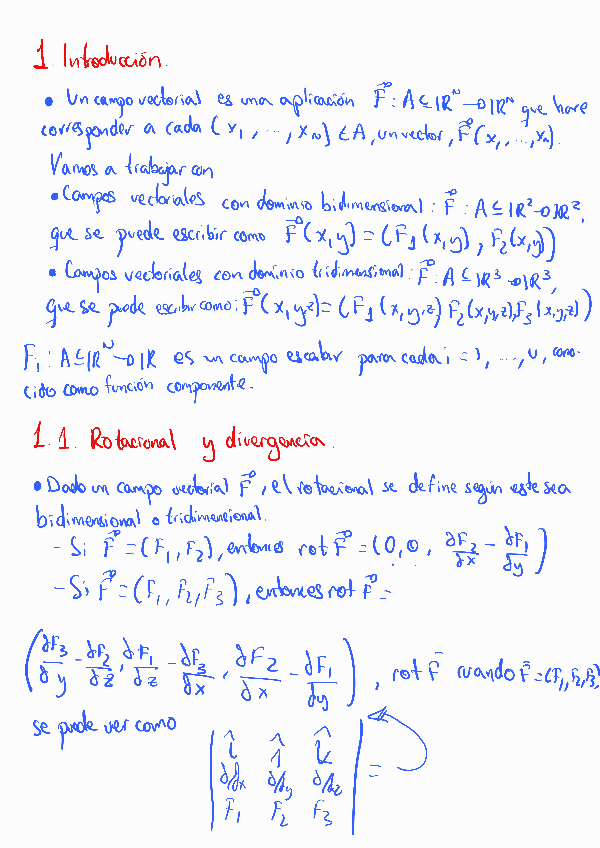 1 Introducción.
• Un campo vectorial es una aplicación F⃗ : A ⊆ ℝᴺ → ℝᴺ que hace
corresponder a cada (x₁, ..., x_N) ∈ A, un vector, F⃗(x₁, ..., x_N).
Vamos a trabajar con
• Campos vectoriales con dominio bidimensional: F⃗ : A ⊆ ℝ² → ℝ²,
que se puede escribir como F⃗(x,y) = (F₁(x,y), F₂(x,y))
• Campos vectoriales con dominio tridimensional: F⃗ : A ⊆ ℝ³ → ℝ³,
que se puede escribir como: F⃗(x,y,z) = (F₁(x,y,z) F₂(x,y,z), F₃(x,y,z))
Fᵢ : A ⊆ ℝᴺ → ℝ es un campo escalar para cada i = 1, ..., N, cono-
cido como función componente.
1.1. Rotacional y divergencia.
• Dado un campo vectorial F⃗, el rotacional se define según este sea
bidimensional o tridimensional.
- Si F⃗ = (F₁, F₂), entonces rot F⃗ = (0, 0, ∂F₂/∂x - ∂F₁/∂y)
- Si F⃗ = (F₁, F₂, F₃), entonces rot F⃗ =
(∂F₃/∂y - ∂F₂/∂z, ∂F₁/∂z - ∂F₃/∂x, ∂F₂/∂x - ∂F₁/∂y), rot F⃗ cuando F⃗ = (F₁, F₂, F₃)
se puede ver como
| î ĵ k̂ |
| ∂/∂x ∂/∂y ∂/∂z | =
| F₁ F₂ F₃ |